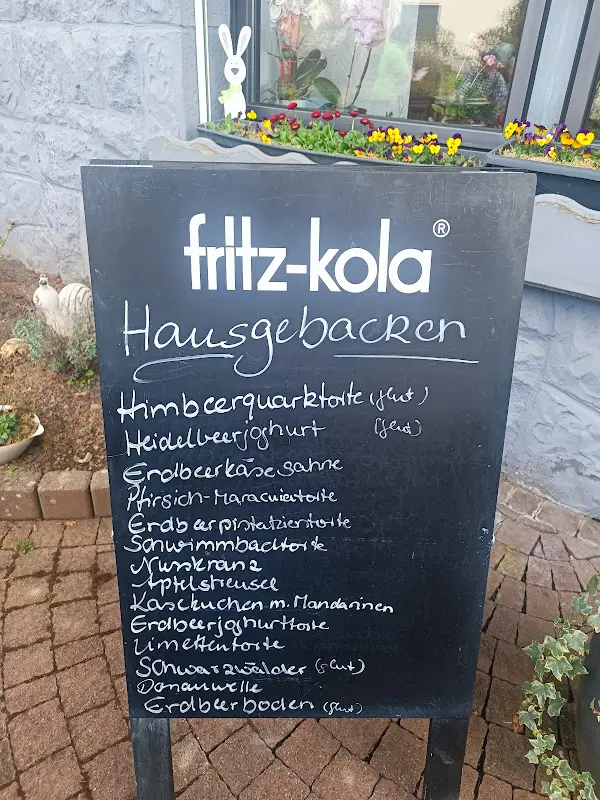 fritz-kola®
Hausgebacken
Himbeerquarktorte (glut)
Heidelbeerjoghurt (glut)
Erdbeerkäsesahne
Pfirsich-Maracuiertorte
Erdbeerpistatzientorte
Schwimmbadtorte
Nusskranz
Apfelstreusel
Käsekuchen m. Mandarinen
Erdbeerjoghurttorte
Limettentorte
Schwarzwälder (glut)
Donauwelle
Erdbeerboden (glut)